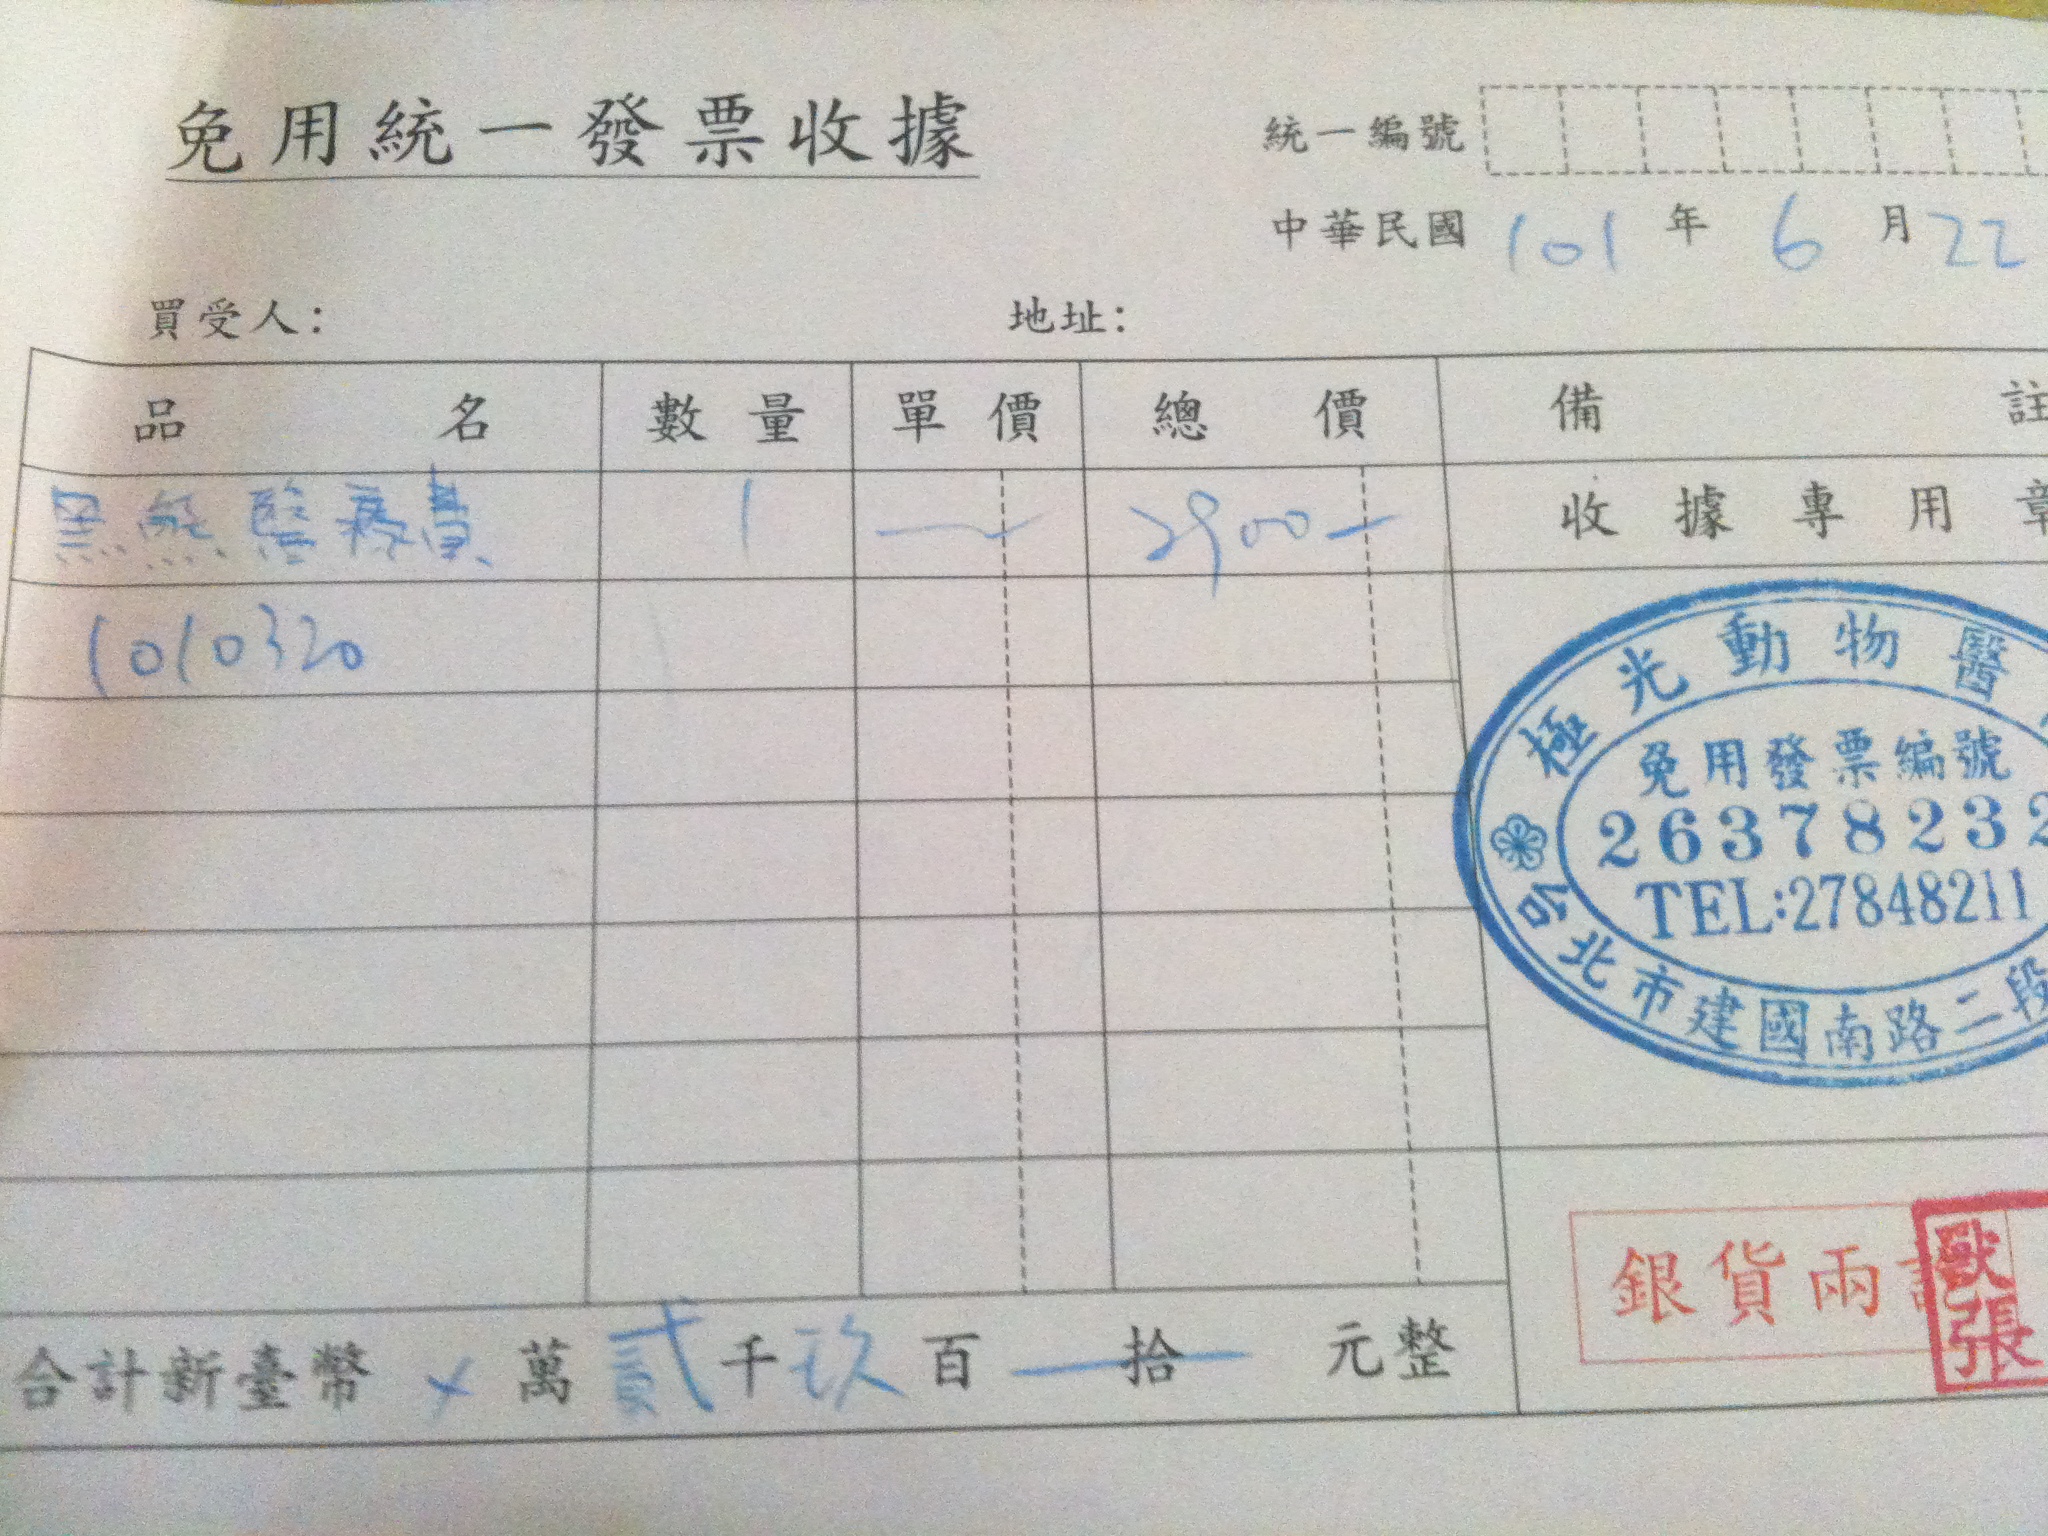 免用統一發票收據
統一編號
中華民國 101 年 6 月 22
買受人： 地址：
品名 數量 單價 總價 備註
黑熊醫療費 1 — 2900— 收據專用章
1010320
極光動物醫
免用發票編號
26378232
TEL:27848211
台北市建國南路二段
合計新臺幣 x 萬 貳 千 玖 百 — 拾 元整
銀貨兩訖
獸
張